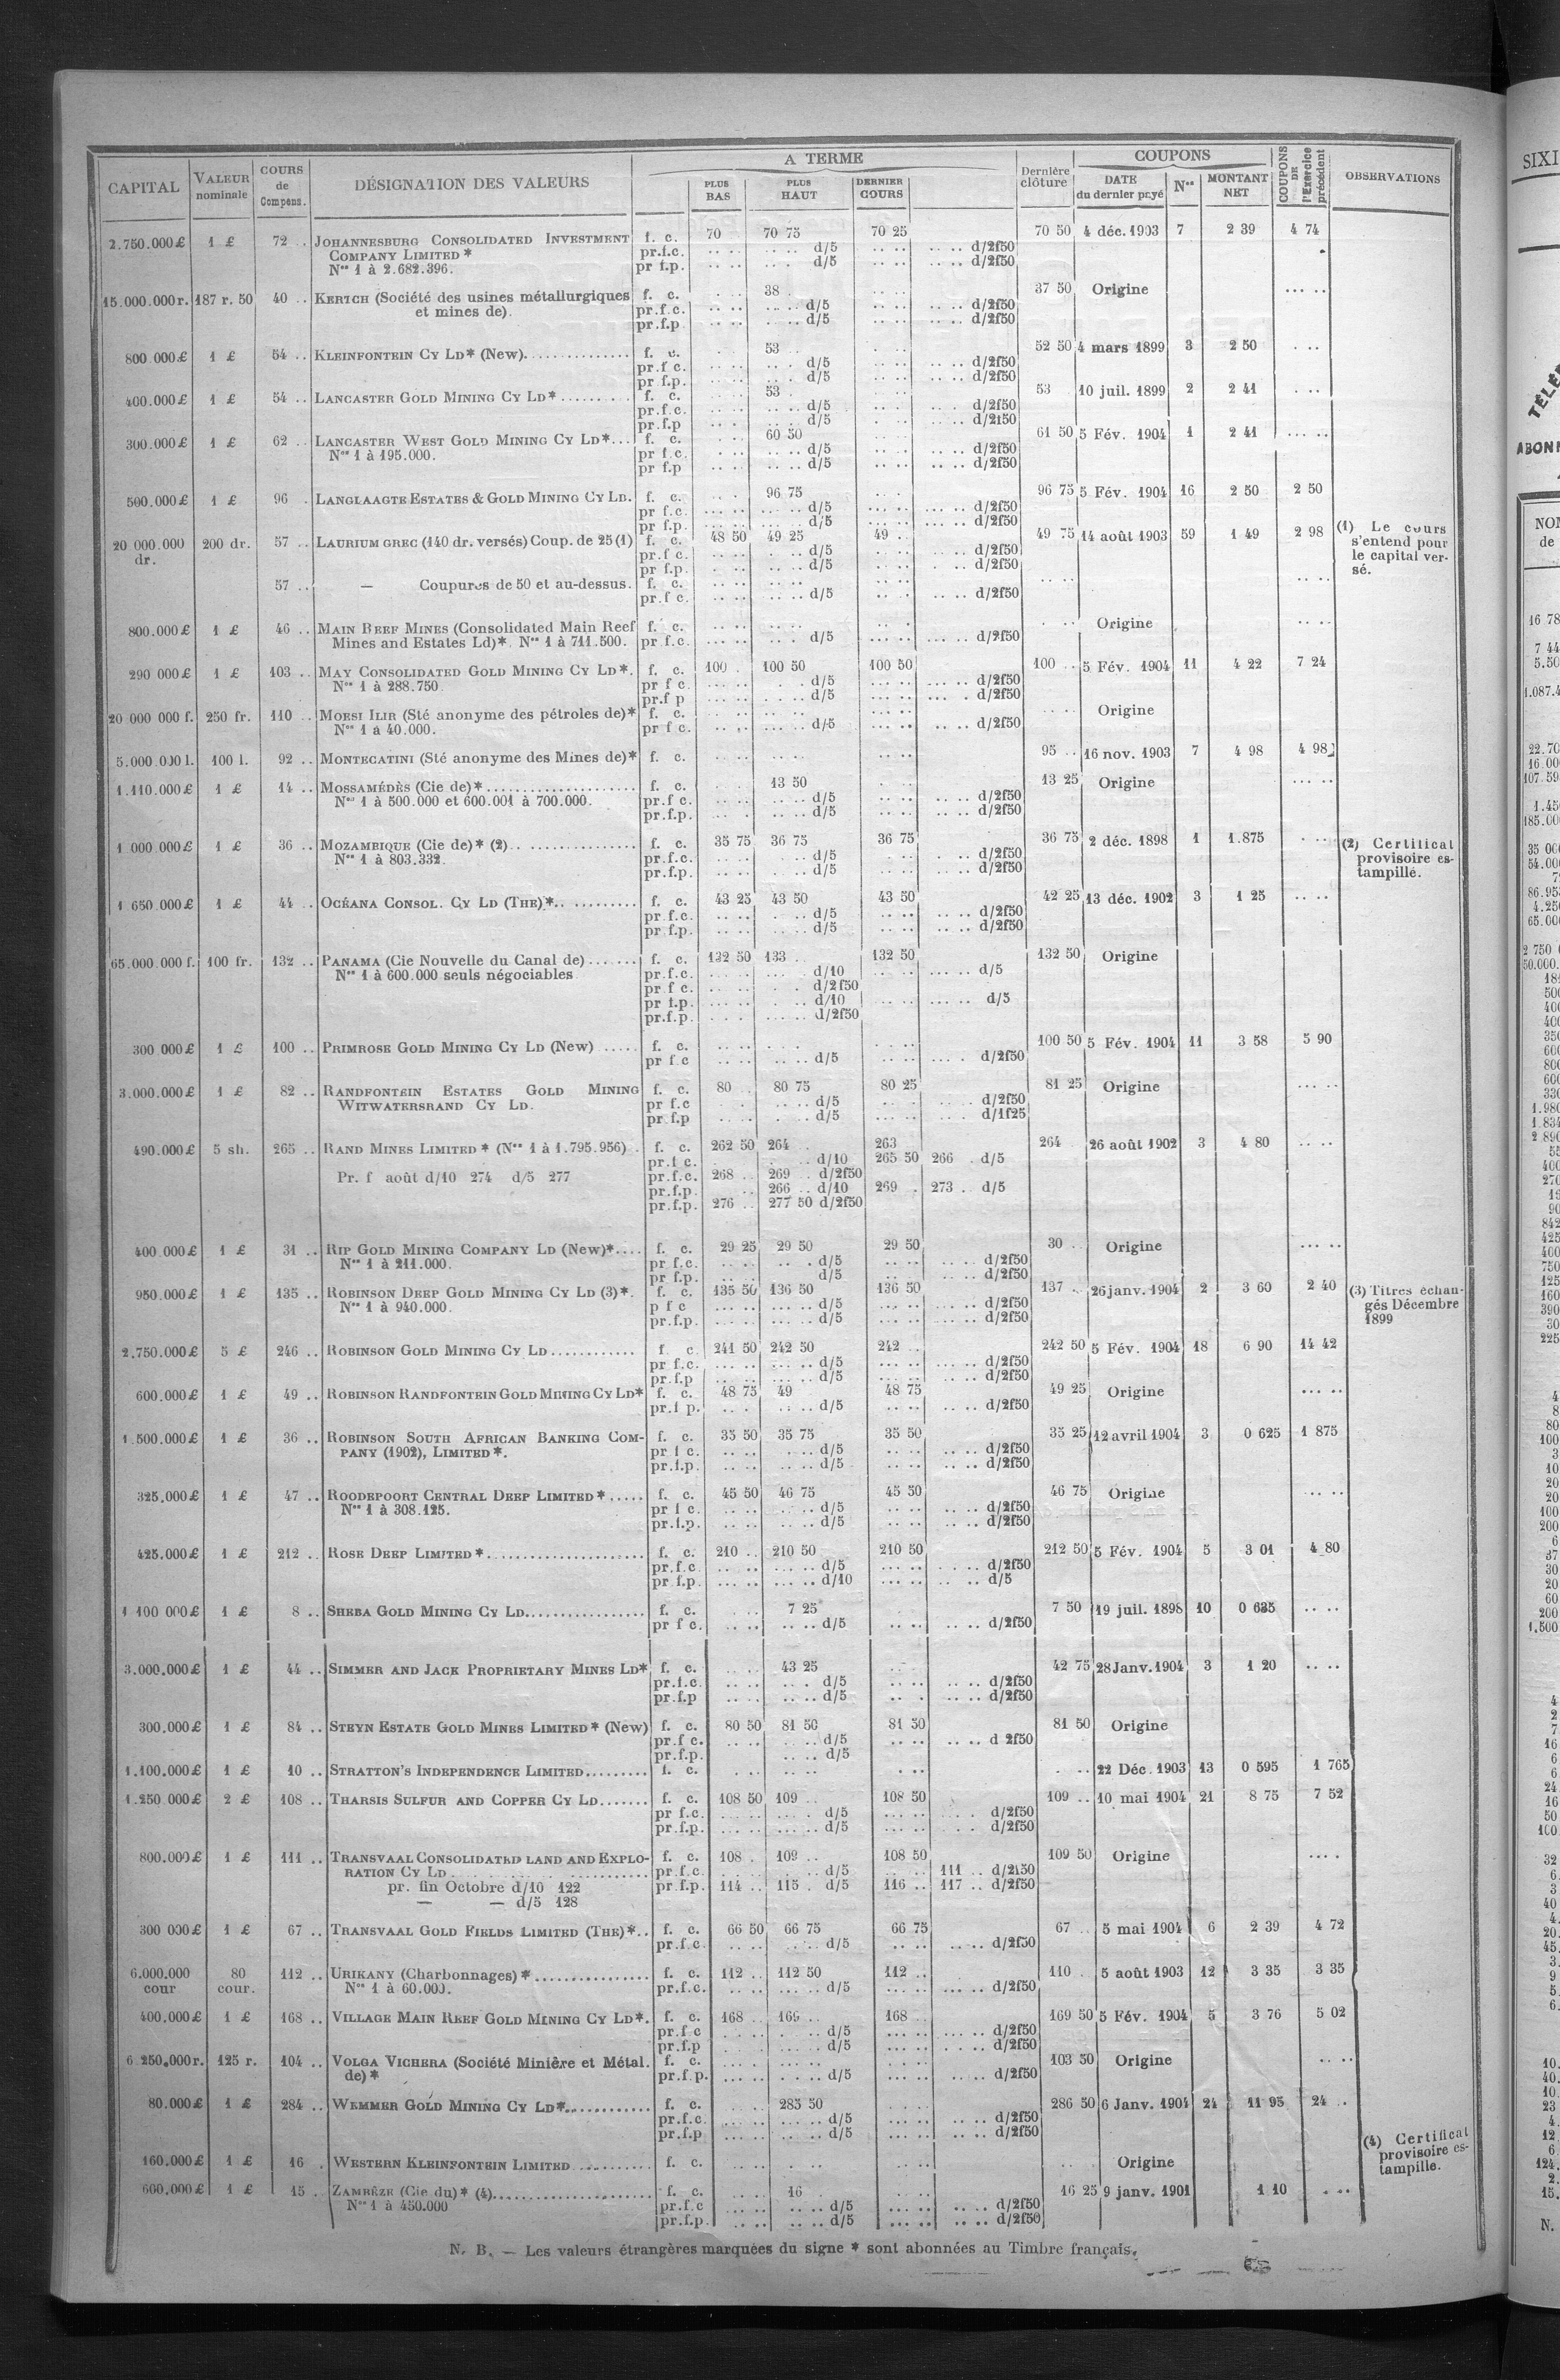 CAPITAL | VALEUR nominale | COURS de Compens. | DÉSIGNATION DES VALEURS | A TERME | PLUS BAS | PLUS HAUT | DERNIER COURS | Dernière clôture | COUPONS | DATE du dernier payé | Nos | MONTANT NET | COUPONS DE l'Exercice précédent | OBSERVATIONS
2.750.000 £ 1 £ 72 .. JOHANNESBURG CONSOLIDATED INVESTMENT f. c. 70 70 75 70 25 70 50 4 déc. 1903 7 2 39 4 74
COMPANY LIMITED * pr.f.c. .. .. .. . d/5 .. .. .. .. d/2f50
Nos 1 à 2.682.396. pr f.p. .. .. .. . d/5 .. .. .. .. d/2f50
15.000.000 r. 187 r. 50 40 .. KERTCH (Société des usines métallurgiques f. c. 38 37 50 Origine
et mines de). pr.f.c. d/5 d/2f50
pr.f.p d/5 d/2f50
800.000 £ 1 £ 54 .. KLEINFONTEIN CY LD* (New) f. c. 53 52 50 4 mars 1899 3 2 50
pr.f c. d/5 d/2f50
pr f.p. d/5 d/2f50
400.000 £ 1 £ 54 .. LANCASTER GOLD MINING CY LD* f. c. 53 53 10 juil. 1899 2 2 41
pr.f.c. d/5 d/2f50
pr.f.p d/5 d/2f50
300.000 £ 1 £ 62 .. LANCASTER WEST GOLD MINING CY LD* f. c. 60 50 61 50 5 Fév. 1904 1 2 41
Nos 1 à 195.000. pr f.c. d/5 d/2f50
pr f.p d/5 d/2f50
500.000 £ 1 £ 96 . LANGLAAGTE ESTATES & GOLD MINING CY LD. f. c. 96 75 96 75 5 Fév. 1904 16 2 50 2 50
pr f.c. d/5 d/2f50
pr f.p. d/5 d/2f50
20 000.000 dr. 200 dr. 57 .. LAURIUM GREC (140 dr. versés) Coup. de 25 (1) f. c. 48 50 49 25 49 .. 49 75 14 août 1903 59 1 49 2 98 (1) Le cours s'entend pour le capital versé.
pr.f c. d/5 d/2f50
pr f.p. d/5 d/2f50
57 .. — Coupures de 50 et au-dessus. f. c.
pr.f c. d/5 d/2f50
800.000 £ 1 £ 46 .. MAIN REEF MINES (Consolidated Main Reef f. c. Origine
Mines and Estates Ld)*. Nos 1 à 711.500. pr.f.c. d/5 d/2f50
290 000 £ 1 £ 103 .. MAY CONSOLIDATED GOLD MINING CY LD*. f. c. 100 . 100 50 100 50 100 .. 5 Fév. 1904 11 4 22 7 24
Nos 1 à 288.750. pr f c. d/5 d/2f50
pr.f p d/5 d/2f50
20 000 000 f. 250 fr. 110 .. MOESI ILIR (Sté anonyme des pétroles de)* f. c. Origine
Nos 1 à 40.000. pr f c. d/5 d/2f50
5.000.000 l. 100 l. 92 .. MONTECATINI (Sté anonyme des Mines de)* f. c. 95 .. 16 nov. 1903 7 4 98 4 98
1.110.000 £ 1 £ 14 .. MOSSAMÉDÈS (Cie de)* f. c. 13 50 13 25 Origine
Nos 1 à 500.000 et 600.001 à 700.000. pr.f c. d/5 d/2f50
pr.f.p. d/5 d/2f50
1.000.000 £ 1 £ 36 .. MOZAMBIQUE (Cie de)* (2) f. c. 35 75 36 75 36 75 36 75 2 déc. 1898 1 1.875 (2) Certificat provisoire estampillé.
Nos 1 à 803.332. pr.f.c. d/5 d/2f50
pr.f.p. d/5 d/2f50
1 650.000 £ 1 £ 44 .. OCÉANA CONSOL. CY LD (THE)* f. c. 43 25 43 50 43 50 42 25 13 déc. 1902 3 1 25
pr.f.c. d/5 d/2f50
pr.f.p. d/5 d/2f50
65.000.000 f. 100 fr. 132 .. PANAMA (Cie Nouvelle du Canal de) f. c. 132 50 133 .. 132 50 132 50 Origine
Nos 1 à 600.000 seuls négociables pr.f.c. d/10 d/5
pr f c. d/2f50
pr f.p. d/10 d/5
pr.f.p. d/2f50
300 000 £ 1 £ 100 .. PRIMROSE GOLD MINING CY LD (New) f. c. 100 50 5 Fév. 1904 11 3 58 5 90
pr f c d/5 d/2f50
3.000.000 £ 1 £ 82 .. RANDFONTEIN ESTATES GOLD MINING f. c. 80 .. 80 75 80 25 81 25 Origine
WITWATERSRAND CY LD. pr f.c d/5 d/2f50
pr f.p d/5 d/1f25
490.000 £ 5 sh. 265 .. RAND MINES LIMITED * (Nos 1 à 1.795.956) f. c. 262 50 264 .. 263 264 26 août 1902 3 4 80
pr.f c. d/10 265 50 266 . d/5
Pr. f août d/10 274 d/5 277 pr.f.c. 268 .. 269 .. d/2f50
pr.f.p. 266 .. d/10 269 . 273 . d/5
pr.f.p. 276 .. 277 50 d/2f50
400 000 £ 1 £ 31 .. RIP GOLD MINING COMPANY LD (New)* f. c. 29 25 29 50 29 50 30 .. Origine
Nos 1 à 211.000. pr f.c. d/5 d/2f50
pr f.p. d/5 d/2f50
950.000 £ 1 £ 135 .. ROBINSON DEEP GOLD MINING CY LD (3)*. f. c. 135 50 136 50 136 50 137 . 26 janv. 1904 2 3 60 2 40 (3) Titres échangés Décembre 1899
Nos 1 à 940.000. p f c d/5 d/2f50
pr.f.p. d/5 d/2f50
2.750.000 £ 5 £ 246 .. ROBINSON GOLD MINING CY LD f. c. 241 50 242 50 242 .. 242 50 5 Fév. 1904 18 6 90 14 42
pr f.c. d/5 d/2f50
pr.f.p d/5 d/2f50
600.000 £ 1 £ 49 .. ROBINSON RANDFONTEIN GOLD MINING CY LD* f. c. 48 75 49 48 75 49 25 Origine
pr.f p. d/5 d/2f50
1.500.000 £ 1 £ 36 .. ROBINSON SOUTH AFRICAN BANKING COM- f. c. 35 50 35 75 35 50 35 25 12 avril 1904 3 0 625 1 875
PANY (1902), LIMITED *. pr f c. d/5 d/2f50
pr.f.p. d/5 d/2f50
325.000 £ 1 £ 47 .. ROODEPOORT CENTRAL DEEP LIMITED * f. c. 45 50 46 75 45 50 46 75 Origine
Nos 1 à 308.125. pr f c. d/5 d/2f50
pr.f.p. d/5 d/2f50
425.000 £ 1 £ 212 .. ROSE DEEP LIMITED * f. c. 210 .. 210 50 210 50 212 50 5 Fév. 1904 5 3 01 4 80
pr.f.c d/5 d/2f50
pr f.p. d/10 d/5
1 100 000 £ 1 £ 8 .. SHEBA GOLD MINING CY LD f. c. 7 25 7 50 19 juil. 1898 10 0 635
pr f c. d/5 d/2f50
3.000.000 £ 1 £ 44 .. SIMMER AND JACK PROPRIETARY MINES LD* f. c. 43 25 42 75 28 Janv. 1904 3 1 20
pr.f.c. d/5 d/2f50
pr.f.p d/5 d/2f50
300.000 £ 1 £ 84 .. STEYN ESTATE GOLD MINES LIMITED * (New) f. c. 80 50 81 50 81 50 81 50 Origine
pr.f c. d/5 d 2f50
pr.f.p. d/5
1.100.000 £ 1 £ 10 .. STRATTON'S INDEPENDENCE LIMITED f. c. 22 Déc. 1903 13 0 595 1 765
1.250 000 £ 2 £ 108 .. THARSIS SULFUR AND COPPER CY LD f. c. 108 50 109 .. 108 50 109 .. 10 mai 1904 21 8 75 7 52
pr f.c. d/5 d/2f50
pr.f.p. d/5 d/2f50
800.000 £ 1 £ 111 .. TRANSVAAL CONSOLIDATED LAND AND EXPLO- f. c. 108 . 109 .. 108 50 109 50 Origine
RATION CY LD pr.f.c. d/5 111 .. d/2f50
pr. fin Octobre d/10 122 pr.f.p. 114 .. 115 . d/5 116 .. 117 .. d/2f50
— — d/5 128
300 000 £ 1 £ 67 .. TRANSVAAL GOLD FIELDS LIMITED (THE)*.. f. c. 66 50 66 75 66 75 67 .. 5 mai 1904 6 2 39 4 72
pr.f.c d/5 d/2f50
6.000.000 cour 80 cour. 112 .. URIKANY (Charbonnages) * f. c. 112 .. 112 50 112 .. 110 . 5 août 1903 12 3 35 3 35
Nos 1 à 60.000. pr.f.c. d/5 d/2f50
400.000 £ 1 £ 168 .. VILLAGE MAIN REEF GOLD MINING CY LD*. f. c. 168 .. 169 .. 168 .. 169 50 5 Fév. 1904 5 3 76 5 02
pr.f.c d/5 d/2f50
pr.f.p d/5 d/2f50
6 250.000 r. 125 r. 104 .. VOLGA VICHERA (Société Minière et Métal. f. c. 103 50 Origine
de) * pr.f.p. d/5 d/2f50
80.000 £ 1 £ 284 .. WEMMER GOLD MINING CY LD* f. c. 285 50 286 50 6 Janv. 1904 24 11 95 24 ..
pr.f.c. d/5 d/2f50
pr.f.p d/5 d/2f50
160.000 £ 1 £ 16 . WESTERN KLEINFONTEIN LIMITED f. c. Origine (4) Certificat provisoire estampille.
600.000 £ 1 £ 15 . ZAMBÈZE (Cie du)* (4) f. c. 16 16 25 9 janv. 1901 1 10
Nos 1 à 450.000 pr.f.c d/5 d/2f50
pr.f.p. d/5 d/2f50
N. B. — Les valeurs étrangères marquées du signe * sont abonnées au Timbre français.
SIXI